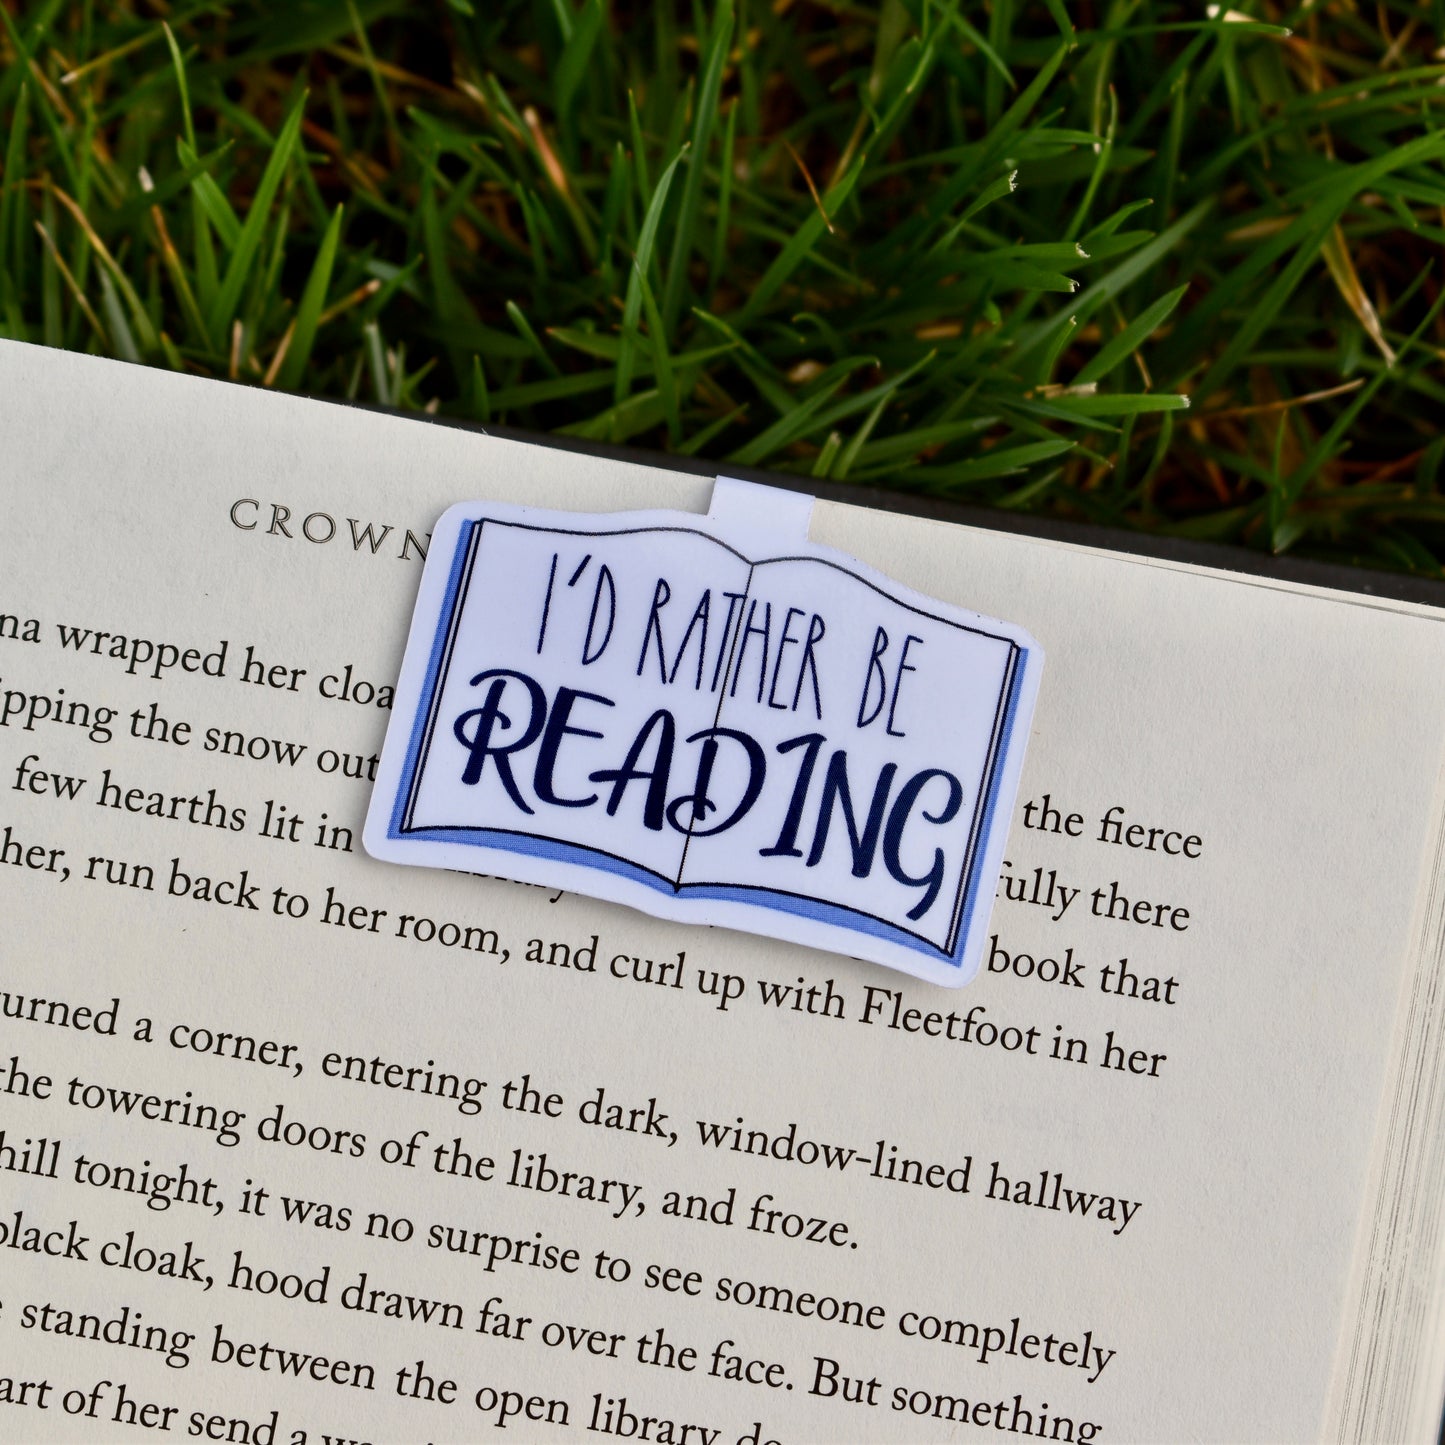 CROWN
I'D RATHER BE
READING
wrapped her
the snow out
few hearths lit in
the fierce
her, run back to her room, and curl up with Fleetfoot in her
there
book that
a corner, entering the dark, window-lined hallway
the towering doors of the library, and froze.
tonight, it was no surprise to see someone completely
cloak, hood drawn far over the face. But something
standing between the open library
of her send a